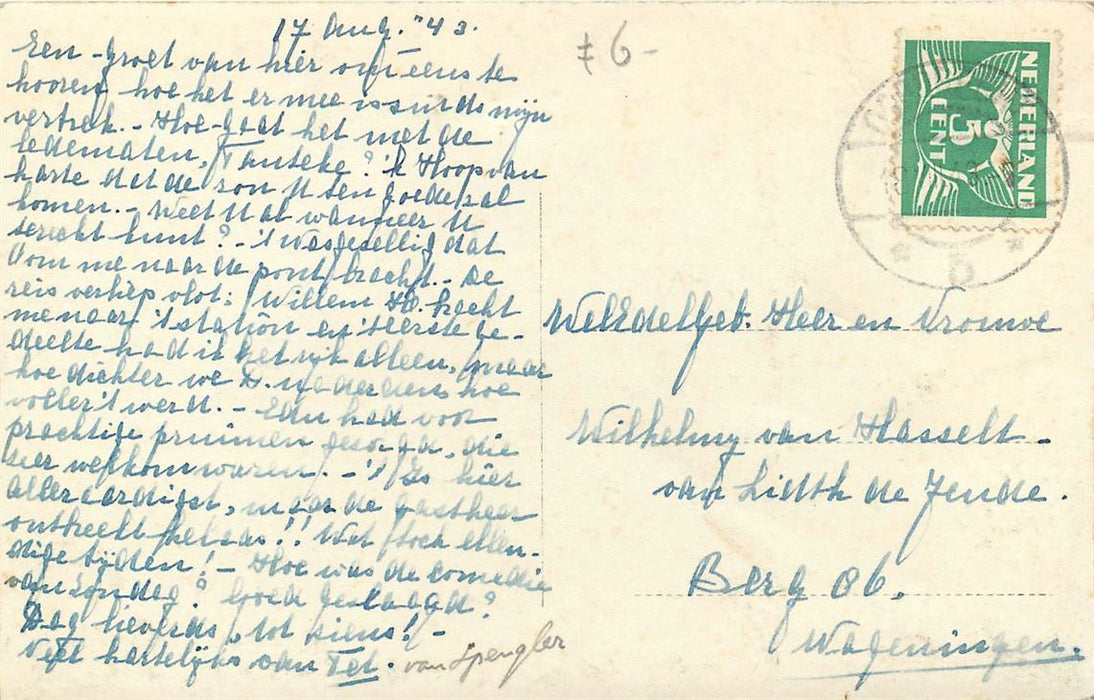 17 Aug. '43.
Een groet van hier om eens te
hooren hoe het er mee is sinds mijn
vertrek. - Hoe gaat het met de
ledematen, Tanteke? 'k Hoop van
harte dat de zon U ten goede zal
komen. - Weet U al wanneer U
terecht kunt? - 't Was gezellig dat
Oom me naar de pont bracht. - De
reis verliep vlot: Willem H. bracht
me naar 't station en 't eerste ge-
deelte had ik het rijk alleen, maar
hoe dichter we D. naderden, hoe
voller 't werd. - had voor
prachtige pruimen gezorgd, die
zeer welkom waren. - 't Is hier
alleraardigst, maar de gastheer
ontbreekt helaas!! Wat toch ellen-
dige tijden! - Hoe was de comedie
van Zondag? Goed geslaagd?
Dag lieverds, tot ziens! -
Veel hartelijks van Tet. van Spengler
f 6-
NEDERLAND
5
CENT
b
WelEdelgeb. Heer en Vrouwe
Wilhelmy van Hasselt -
van Lidth de Jeude.
Berg 86.
Wageningen.